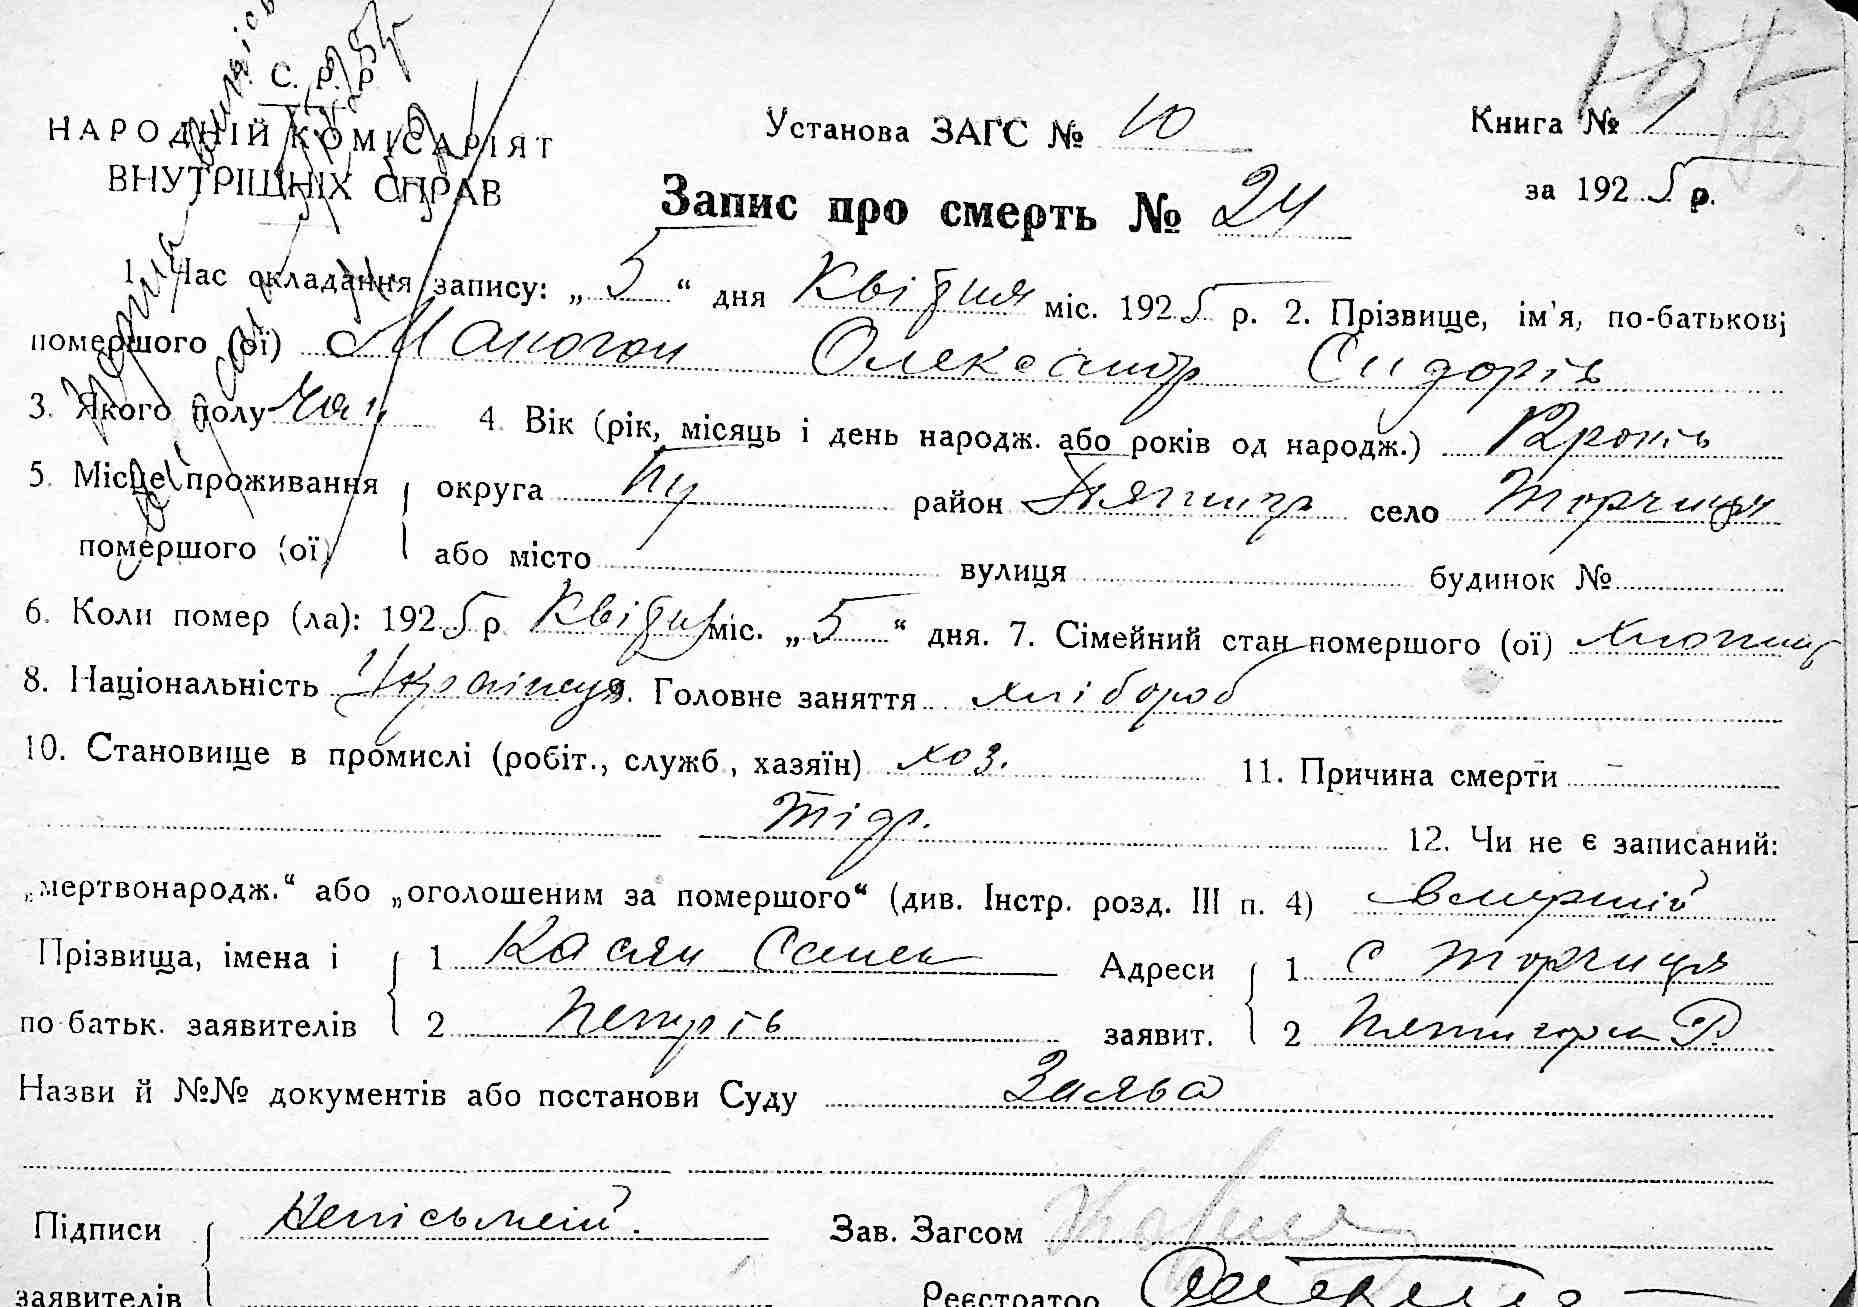 С. Р. Р.
НАРОДНІЙ КОМІСАРІЯТ
ВНУТРІШНІХ СПРАВ
Установа ЗАГС № 10
Книга № 1
за 1925 р.
Запис про смерть № 24
1. Час складання запису: „5“ дня Квітня міс. 1925 р. 2. Прізвище, ім'я, по-батькові
помершого (ої) Олександр Сидорів
3. Якого полу чол 4. Вік (рік, місяць і день народж. або років од народж.) 12 років
5. Місце проживання округа район село Торчиця
помершого (ої) або місто вулиця будинок №
6. Коли помер (ла): 1925 р Квітня міс. „5“ дня. 7. Сімейний стан помершого (ої)
8. Національність Українця 9. Головне заняття хлібороб
10. Становище в промислі (робіт., служб., хазяїн) хоз. 11. Причина смерти
12. Чи не є записаний:
„мертвонародж.“ або „оголошеним за помершого“ (див. Інстр. розд. III п. 4) вмерший
Прізвища, імена і 1 Касян Семен Адреси 1 с Торчиця
по батьк. заявителів 2 Петрів заявит. 2 Пятигорск Р.
Назви й №№ документів або постанови Суду Заява
Підписи Неписьмений. Зав. Загсом
заявителів Реєстратор